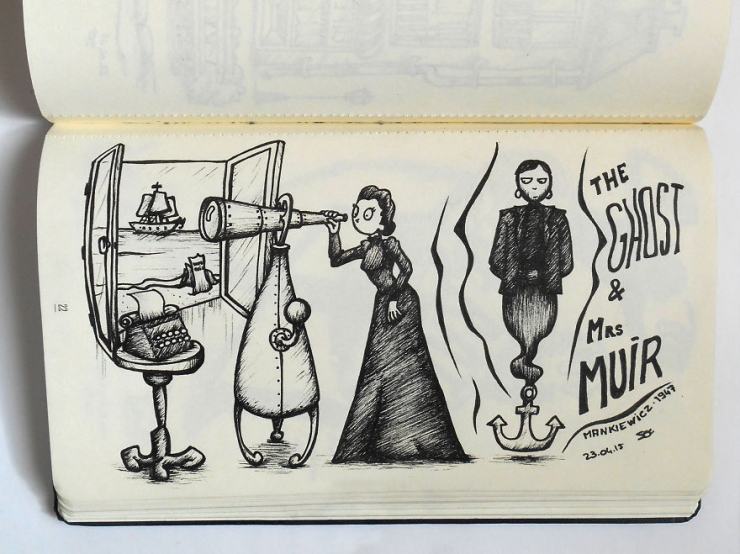 THE
GHOST
&
MRS
MUIR
MANKIEWICZ-1947
23.04.15
22